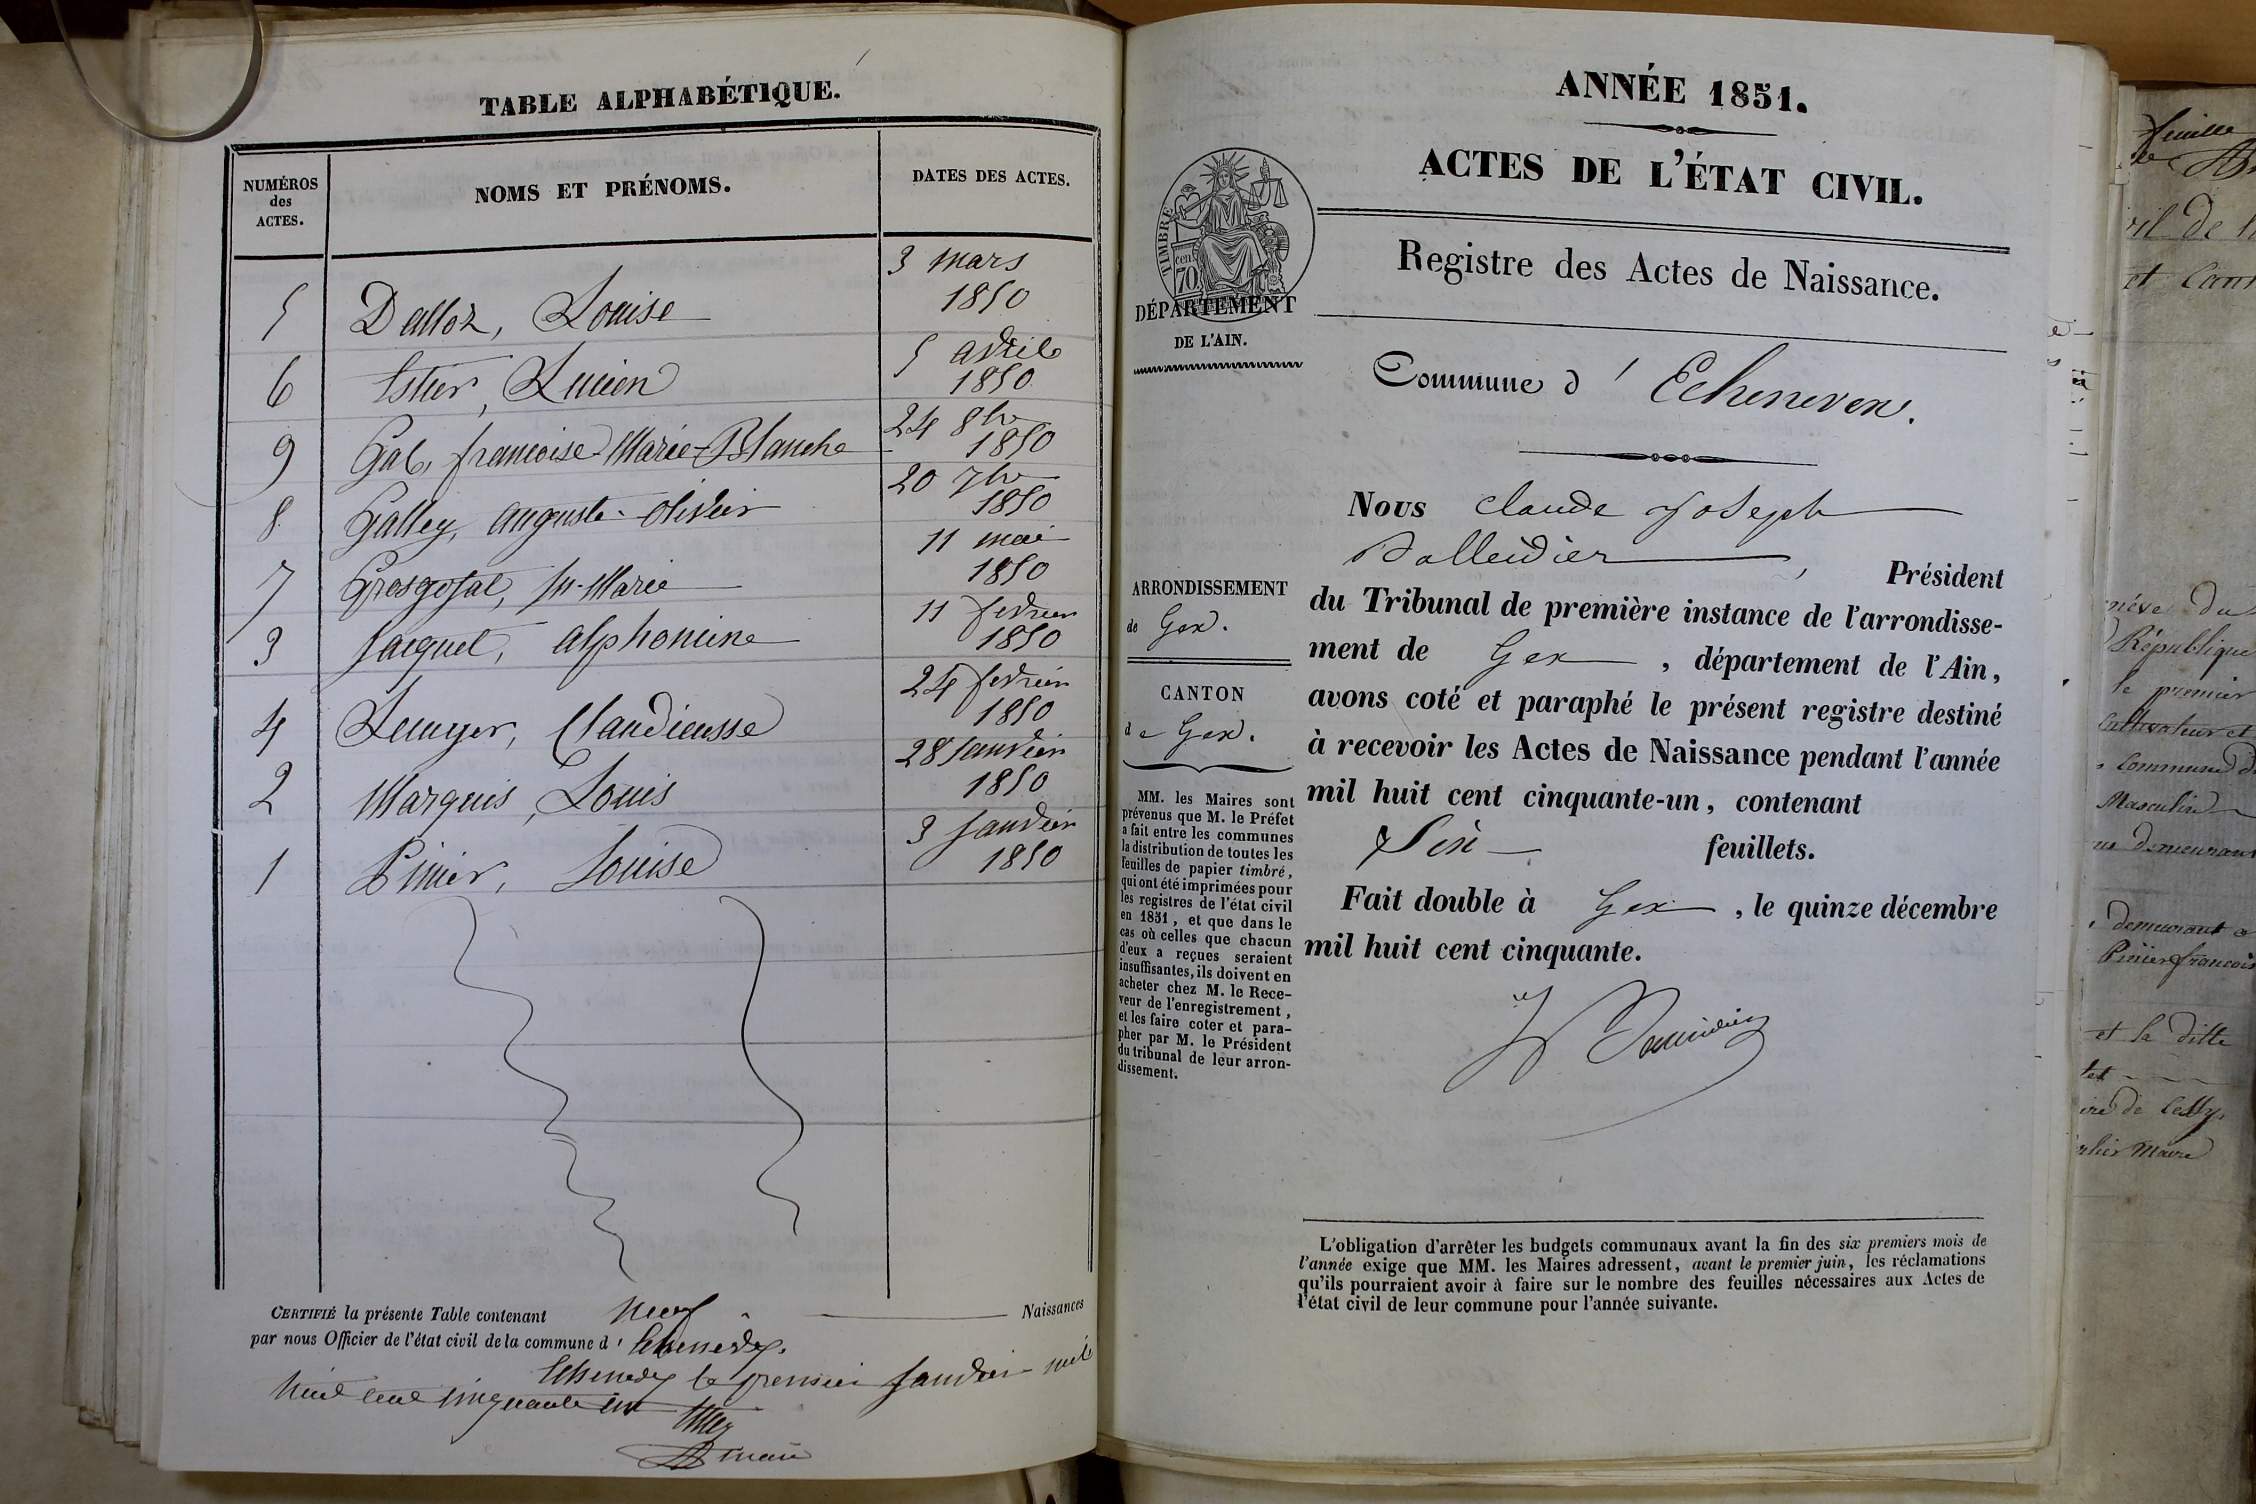 TABLE ALPHABÉTIQUE.
NUMÉROS des ACTES.
NOMS ET PRÉNOMS.
DATES DES ACTES.
5 Dalloz, Louise 3 mars 1850
6 Estier, Lucien 5 avril 1850
9 Gal, francoise-Marie-Blanche 24 8bre 1850
8 Galley, auguste-olivier 20 7bre 1850
7 Grosgojat, Marie 11 mai 1850
3 Jacquet, alphonsine 11 fevrier 1850
4 Claudieusse 24 fevrier 1850
2 Marquis, Louis 28 Janvier 1850
1 Pinier, Louise 3 Janvier 1850
CERTIFIÉ la présente Table contenant neuf Naissances
par nous Officier de l'état civil de la commune d' Echenevex.
Echenevex le premier Janvier mil
huit cent cinquante un
maire
ANNÉE 1851.
ACTES DE L'ÉTAT CIVIL.
TIMBRE
70 cen
DÉPARTEMENT
DE L'AIN.
Registre des Actes de Naissance.
Commune d' Echenevex.
ARRONDISSEMENT
de Gex.
CANTON
de Gex.
MM. les Maires sont
prévenus que M. le Préfet
a fait entre les communes
la distribution de toutes les
feuilles de papier timbré,
qui ont été imprimées pour
les registres de l'état civil
en 1851, et que dans le
cas où celles que chacun
d'eux a reçues seraient
insuffisantes, ils doivent en
acheter chez M. le Rece-
veur de l'enregistrement,
et les faire coter et para-
pher par M. le Président
du tribunal de leur arron-
dissement.
Nous Claude Joseph
Balleidier, Président
du Tribunal de première instance de l'arrondisse-
ment de Gex, département de l'Ain,
avons coté et paraphé le présent registre destiné
à recevoir les Actes de Naissance pendant l'année
mil huit cent cinquante-un, contenant
Six feuillets.
Fait double à Gex, le quinze décembre
mil huit cent cinquante.
L'obligation d'arrêter les budgets communaux avant la fin des six premiers mois de
l'année exige que MM. les Maires adressent, avant le premier juin, les réclamations
qu'ils pourraient avoir à faire sur le nombre des feuilles nécessaires aux Actes de
l'état civil de leur commune pour l'année suivante.
feuille
et Cant
du
République
le premier
Cultivateur et
Commune d
Masculin
demeurant
demeurant a
Pinier francois
et la ditte
de Cessy
Maire